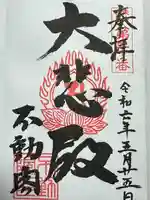 奉拝
令和 年五月廿五日
大悲殿
不動岡